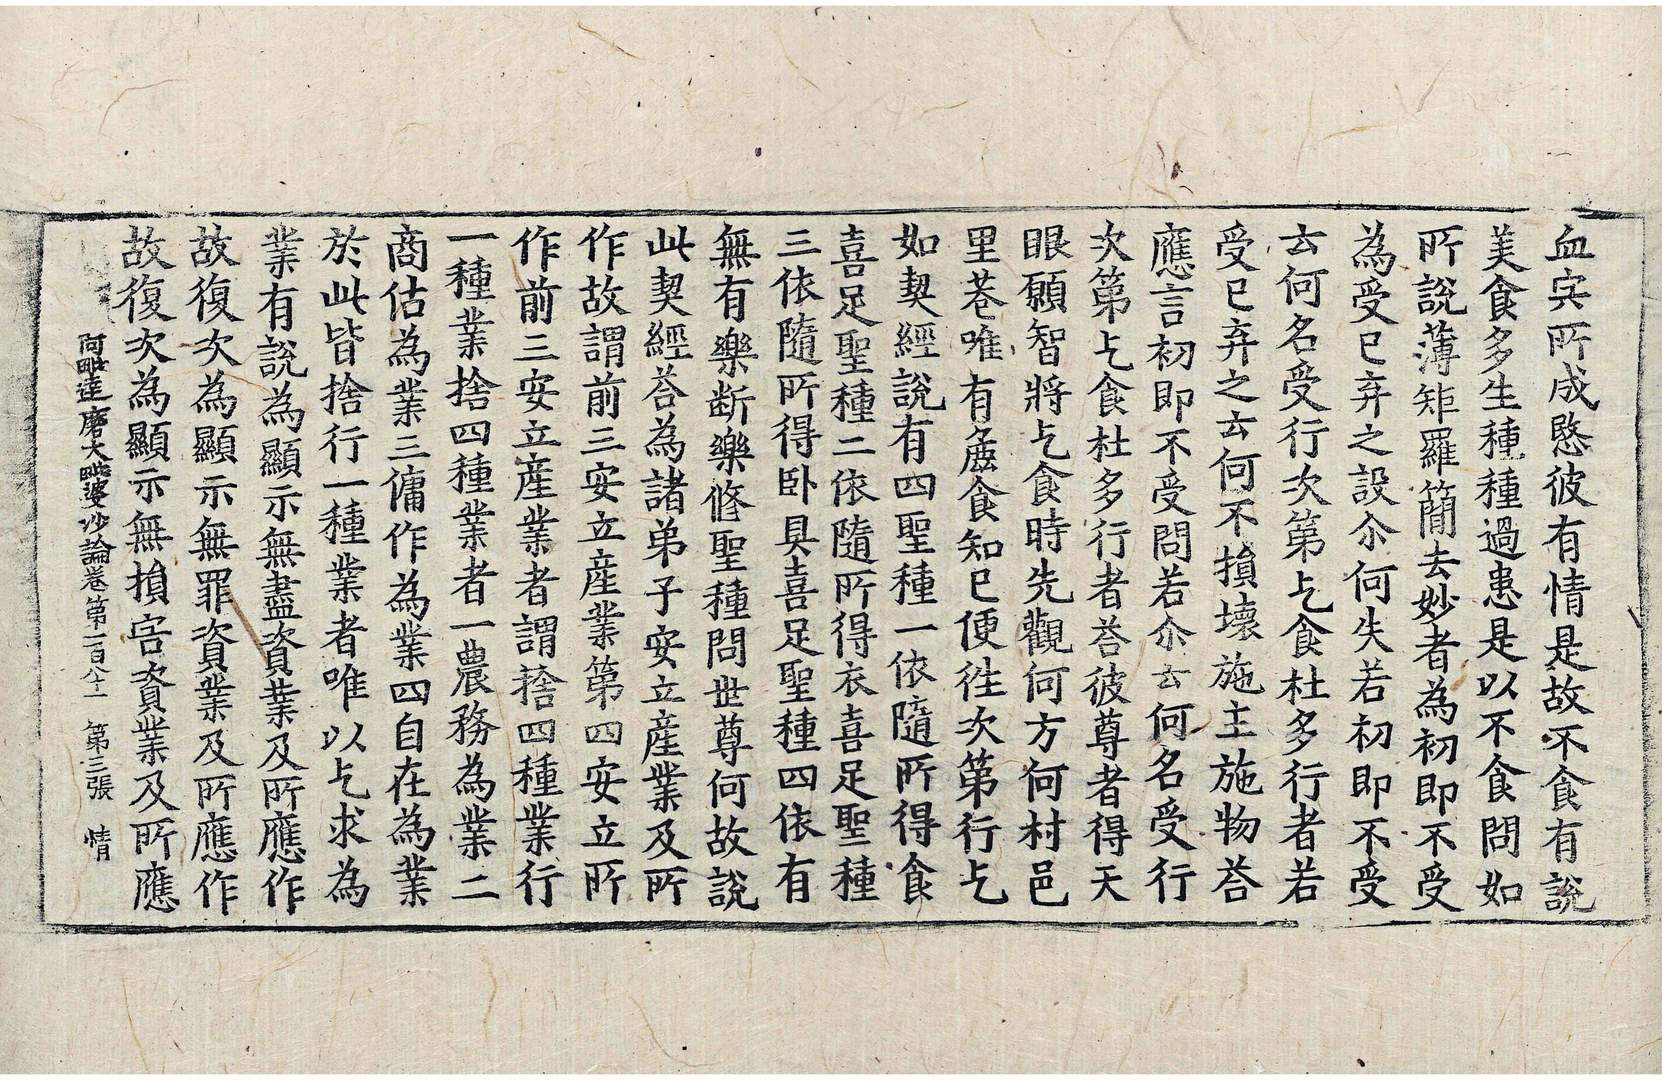 血宍所成愍彼有情是故不食有說
美食多生種種過患是以不食問如
所說薄矩羅簡去妙者為初即不受
為受已弃之設尒何失若初即不受
云何名受行次第乞食杜多行者若
受已弃之云何不損壞施主施物荅
應言初即不受問若尒云何名受行
次第乞食杜多行者荅彼尊者得天
眼願智將乞食時先觀何方何村邑
里巷唯有麁食知已便往次第行乞
如契經說有四聖種一依隨所得食
喜足聖種二依隨所得衣喜足聖種
三依隨所得卧具喜足聖種四依有
無有樂斷樂修聖種問世尊何故說
此契經荅為諸弟子安立產業及所
作故謂前三安立產業第四安立所
作前三安立產業者謂捨四種業行
一種業捨四種業者一農務為業二
商估為業三傭作為業四自在為業
於此皆捨行一種業者唯以乞求為
業有說為顯示無盡資業及所應作
故復次為顯示無罪資業及所應作
故復次為顯示無損害資業及所應
阿毗達磨大毗婆沙論卷第一百八十一 第三張 情